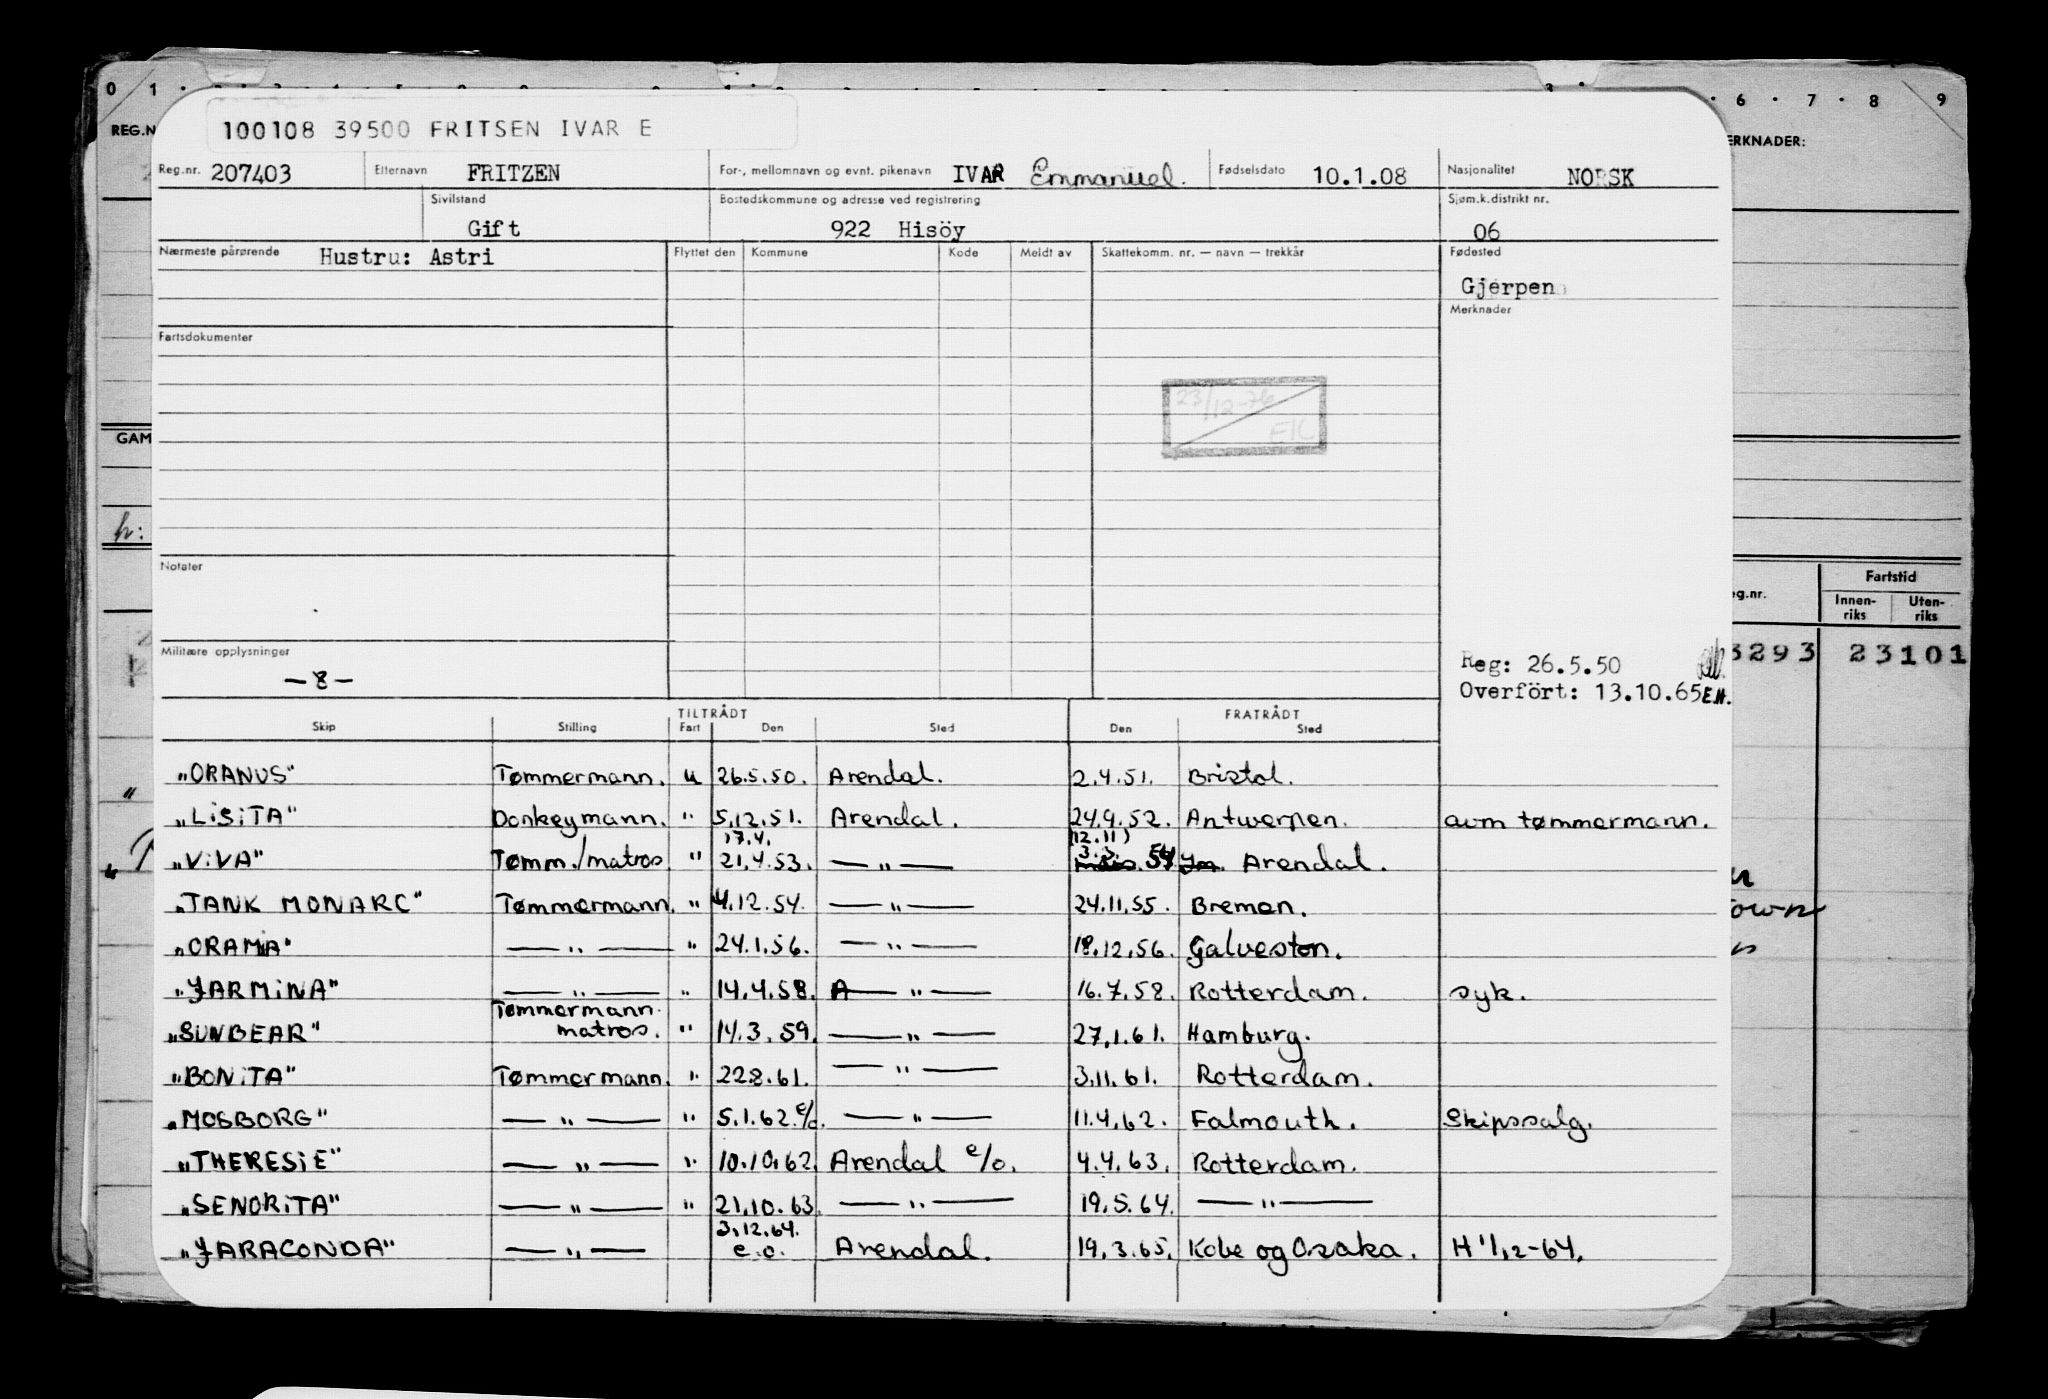 0 1
6 · 7 · 8 9
REG.N
ERKNADER:
100108 39500 FRITSEN IVAR E
Reg.nr. 207403 Etternavn FRITZEN For-, mellomnavn og evnt. pikenavn IVAR Emmanuel. Fødselsdato 10.1.08 Nasjonalitet NORSK
Sivilstand Gift Bostedskommune og adresse ved registrering 922 Hisöy Sjøm.k.distrikt nr. 06
Nærmeste pårørende Hustru: Astri Flyttet den Kommune Kode Meldt av Skattekomm. nr. — navn — trekkår Fødested
Gjerpen
Merknader
Fartsdokumenter
23/12-76
EK
GAM
h:
Notater
Fartstid
eg.nr. Innen-riks Uten-riks
Militære opplysninger
— 8 —
Reg: 26.5.50
3293 23101
Overfört: 13.10.65 E.H.
TILTRÅDT FRATRÅDT
Skip Stilling Fart Den Sted Den Sted
„ORANUS" Tømmermann. u 26.5.50. Arendal. 2.4.51. Bristol.
„LISITA" Donkeymann. " 5.12.51. Arendal. 24.9.52. Antwerpen. avm tømmermann.
17.4. (12.11)
„VIVA" Tømm./matros. " 21.4.53. — " — 3.3. 54 Arendal.
„TANK MONARC" Tømmermann. " 4.12.54. — " — 24.11.55. Bremen.
„ORAMA" — " — " 24.1.56. — " — 18.12.56. Galveston.
„JARMINA" — " — " 14.4.58. — " — 16.7.58. Rotterdam. syk.
„SUNBEAR" Tømmermann. matros. " 14.3.59. — " — 27.1.61. Hamburg.
„BONITA" Tømmermann. " 22.8.61. — " — 3.11.61. Rotterdam.
„MOSBORG" — " — " 5.1.62. e/o. — " — 11.4.62. Falmouth. Skipssalg.
„THERESIE" — " — " 10.10.62. Arendal e/o. 4.4.63. Rotterdam.
„SENORITA" — " — " 21.10.63. — " — 19.5.64. — " —
„JARACONDA" — " — 3.12.64. e.o. Arendal. 19.3.65. Kobe og Osaka. H 1/12-64.